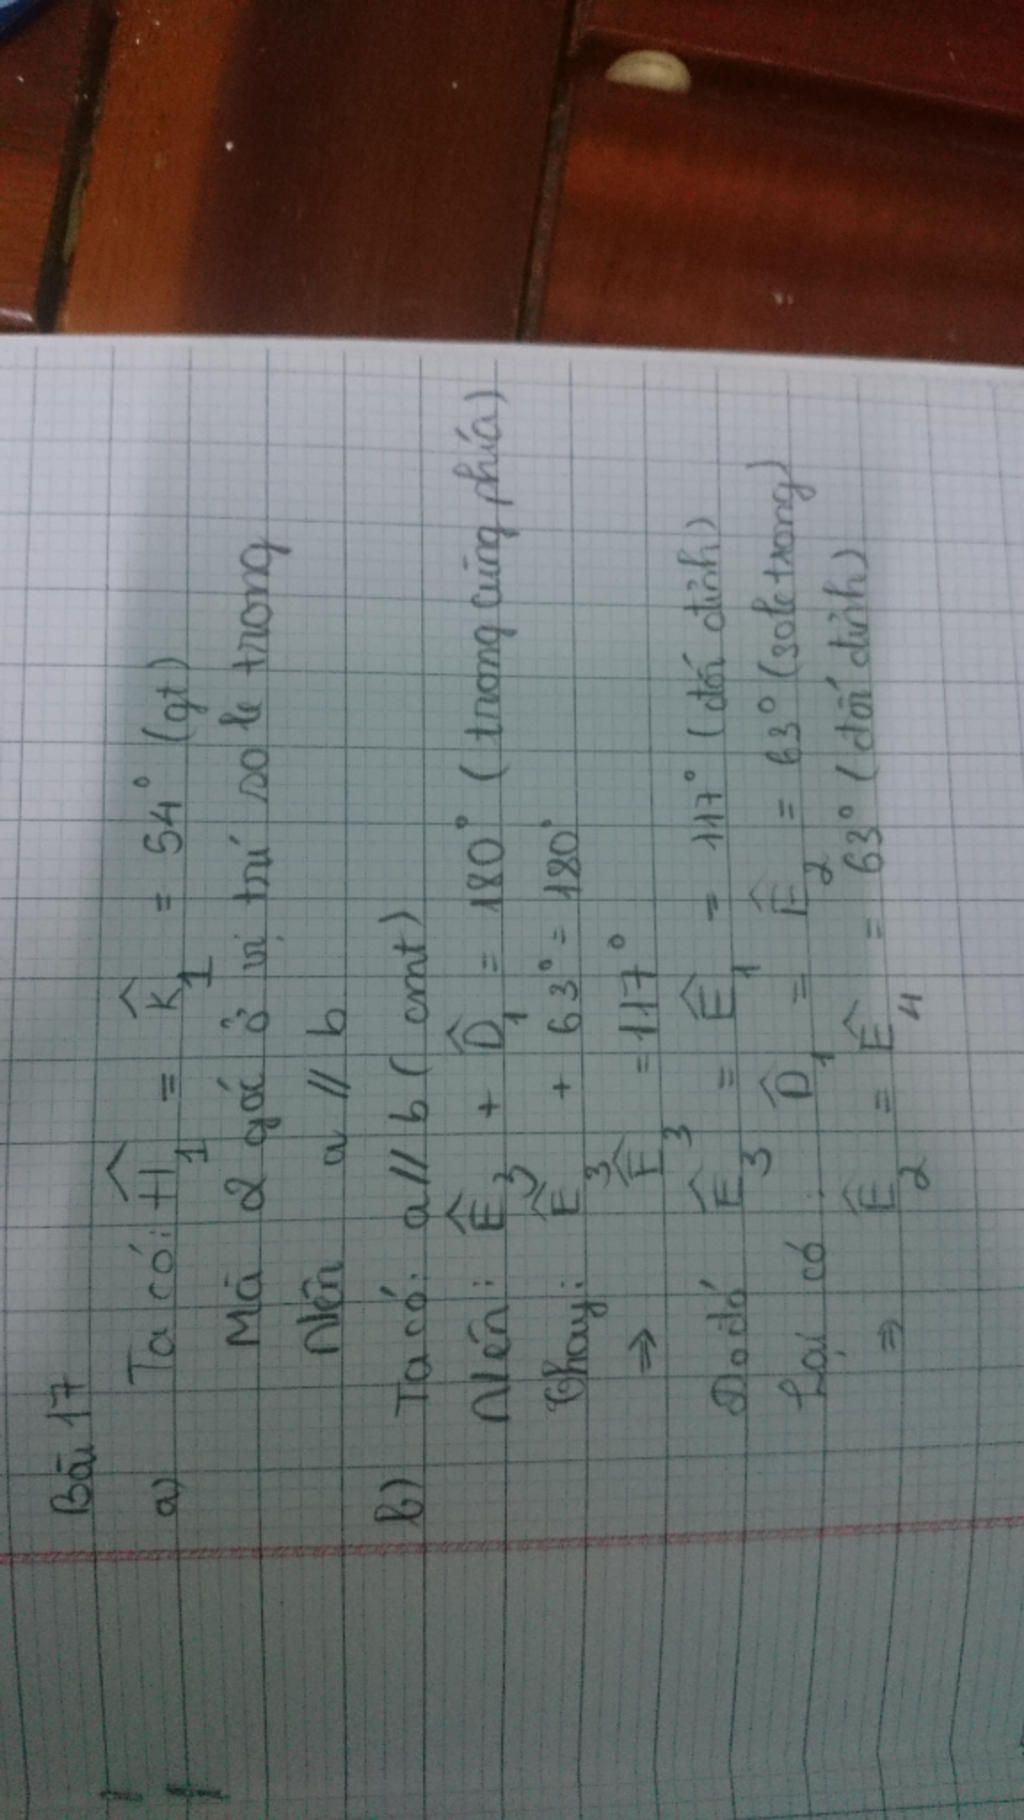 Bài 17
a) Ta có: Ĥ₁ = K̂₁ = 54° (gt)
Mà 2 góc ở vị trí so le trong
Nên a // b
b) Ta có: a // b (cmt)
Nên: Ê₃ + D̂₁ = 180° (trong cùng phía)
Thay: Ê₃ + 63° = 180°
⇒ Ê₃ = 117°
Do đó Ê₃ = Ê₁ = 117° (đối đỉnh)
Lại có: D̂₁ = Ê₂ = 63° (so le trong)
⇒ Ê₂ = Ê₄ = 63° (đối đỉnh)